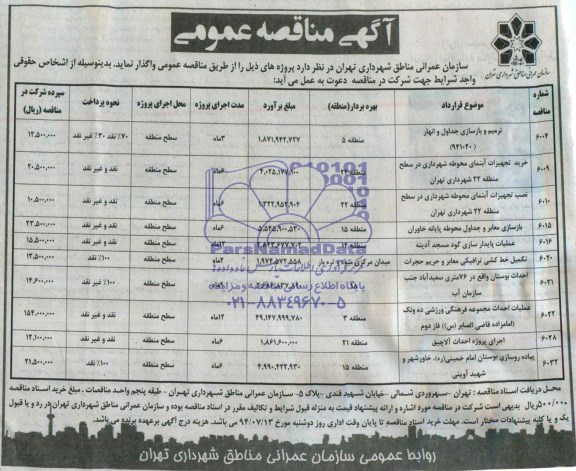 آگهی مناقصه عمومی
سازمان عمرانی مناطق شهرداری تهران
سازمان عمرانی مناطق شهرداری تهران در نظر دارد پروژه های ذیل را از طریق مناقصه عمومی واگذار نماید. بدینوسیله از اشخاص حقوقی
واجد شرایط جهت شرکت در مناقصه دعوت به عمل می آید:
شماره مناقصه | موضوع قرارداد | بهره بردار(منطقه) | مبلغ برآورد | مدت اجرای پروژه | محل اجرای پروژه | نحوه پرداخت | سپرده شرکت در مناقصه (ریال)
۶۰۰۴ | ترمیم و بازسازی جداول و انهار (۹۴۱۰۲۰) | منطقه ۵ | ۱،۸۷۱،۹۴۲،۷۲۷ | ۳ماه | سطح منطقه | ۷۰٪ نقد ۳۰٪ غیر نقد | ۱۲،۵۰۰،۰۰۰
۶۰۰۹ | خرید تجهیزات آبنمای محوطه شهرداری در سطح منطقه ۲۲ شهرداری تهران | منطقه ۲۲ | ۴،۰۲۵،۱۷۷،۱۰۰ | ۶ماه | سطح منطقه | نقد و غیر نقد | ۲۰،۵۰۰،۰۰۰
۶۰۱۰ | نصب تجهیزات آبنمای محوطه شهرداری در سطح منطقه ۲۲ شهرداری تهران | منطقه ۲۲ | ۱،۳۲۲،۹۵۲،۹۰۴ | ۶ماه | سطح منطقه | نقد و غیر نقد | ۱۰،۵۰۰،۰۰۰
۶۰۱۵ | بازسازی معابر و جداول محوطه پایانه خاوران | منطقه ۱۵ | ۵،۵۴۵،۹۰۰،۵۳۰ | ۶ماه | سطح منطقه | نقد و غیر نقد | ۲۳،۵۰۰،۰۰۰
۶۰۱۶ | عملیات پایدار سازی گود مسجد آدینه | منطقه ۱۴ | ۲،۸۲۳،۶۷۷،۷۰۲ | ۱۲ماه | سطح منطقه | نقد و غیر نقد | ۱۵،۵۰۰،۰۰۰
۶۰۲۰ | تکمیل خط کشی ترافیکی معابر و حریم حجرات | میدان مرکزی میوه و تره بار | ۱،۹۷۴،۵۷۲،۵۵۸ | ۲ماه | سطح منطقه | ۱۰۰٪ نقد | ۱۲،۵۰۰،۰۰۰
۶۰۲۱ | احداث بوستان واقع در ۷۶متری سعیدآباد جنب سازمان آب | سطح منطقه | ۱۰۰٪ غیر نقد | ۱۴،۶۰۰،۰۰۰
۶۰۲۲ | عملیات احداث مجموعه فرهنگی ورزشی ده ونک (امامزاده قاضی الصابر (س)) فاز دوم | منطقه ۳ | ۴۹،۱۴۷،۹۹۹،۷۸۰ | ۱۲ماه | سطح منطقه | نقد و غیر نقد | ۱۵۴،۰۰۰،۰۰۰
۶۰۲۸ | اجرای پروژه احداث آلاچیق | منطقه ۲۱ | ۱،۸۶۱،۶۰۰،۰۰۰ | ۶ماه | سطح منطقه | نقد و غیر نقد | ۱۲،۱۰۰،۰۰۰
۶۰۳۲ | پیاده روسازی بوستان امام خمینی(ره)، خاورشهر و شهید آوینی | منطقه ۱۵ | ۴،۹۹۰،۴۲۲،۹۳۰ | ۶ماه | سطح منطقه | ۱۰۰٪ نقد | ۲۱،۵۰۰،۰۰۰
ParsNamadData
پایگاه اطلاع رسانی مناقصه و مزایده
۰۲۱-۸۸۳۴۹۶۷۰-۵
محل دریافت اسناد مناقصه : تهران -سهروردی شمالی -خیابان شهید قندی -پلاک ۵- سازمان عمرانی مناطق شهرداری تهران - طبقه پنجم واحد مناقصات . مبلغ خرید اسناد مناقصه
۵۰۰/۰۰۰ریال بدیهی است شرکت در مناقصه مورد اشاره و ارائه پیشنهاد قیمت به منزله قبول شرایط و تکالیف مقرر در اسناد مناقصه بوده و سازمان عمرانی مناطق شهرداری تهران در رد و یا قبول
یک و یا کلیه پیشنهادات مختار است. مهلت خرید اسناد مناقصه تا پایان وقت اداری روز دوشنبه مورخ ۹۴/۰۷/۱۳ می باشد. هزینه درج آگهی برعهده برنده می باشد.
روابط عمومی سازمان عمرانی مناطق شهرداری تهران